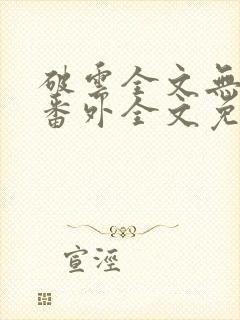 破雲全文無
番外全文免
宣涇